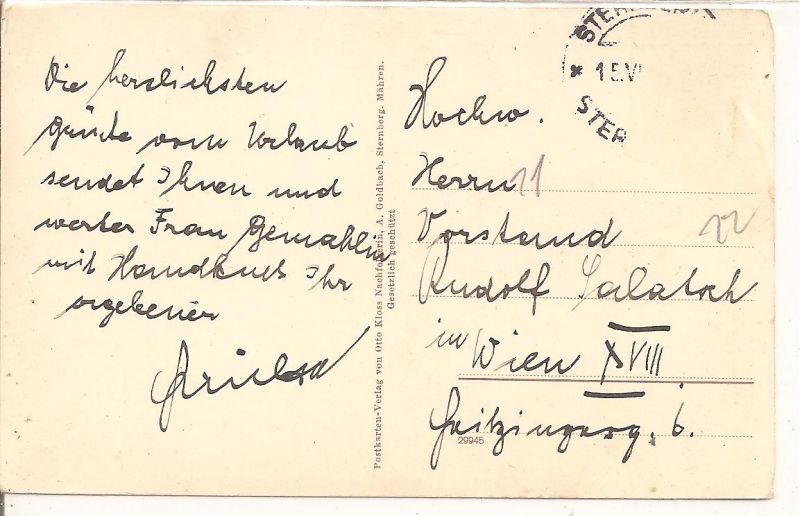 Die herzlichsten
Grüße vom Urlaub
sendet Ihnen und
werter Frau Gemahlin
mit Handkuß Ihr
ergebener
Postkarten-Verlag von Otto Kloss Nachfolgerin, A. Goldbach, Sternberg, Mähren.
Gesetzlich geschützt
STER
* 15.VI
STER
Hochw.
Herrn 11
Vorstand 22
Rudolf Salatsch
in Wien XVIII.
6.
29945